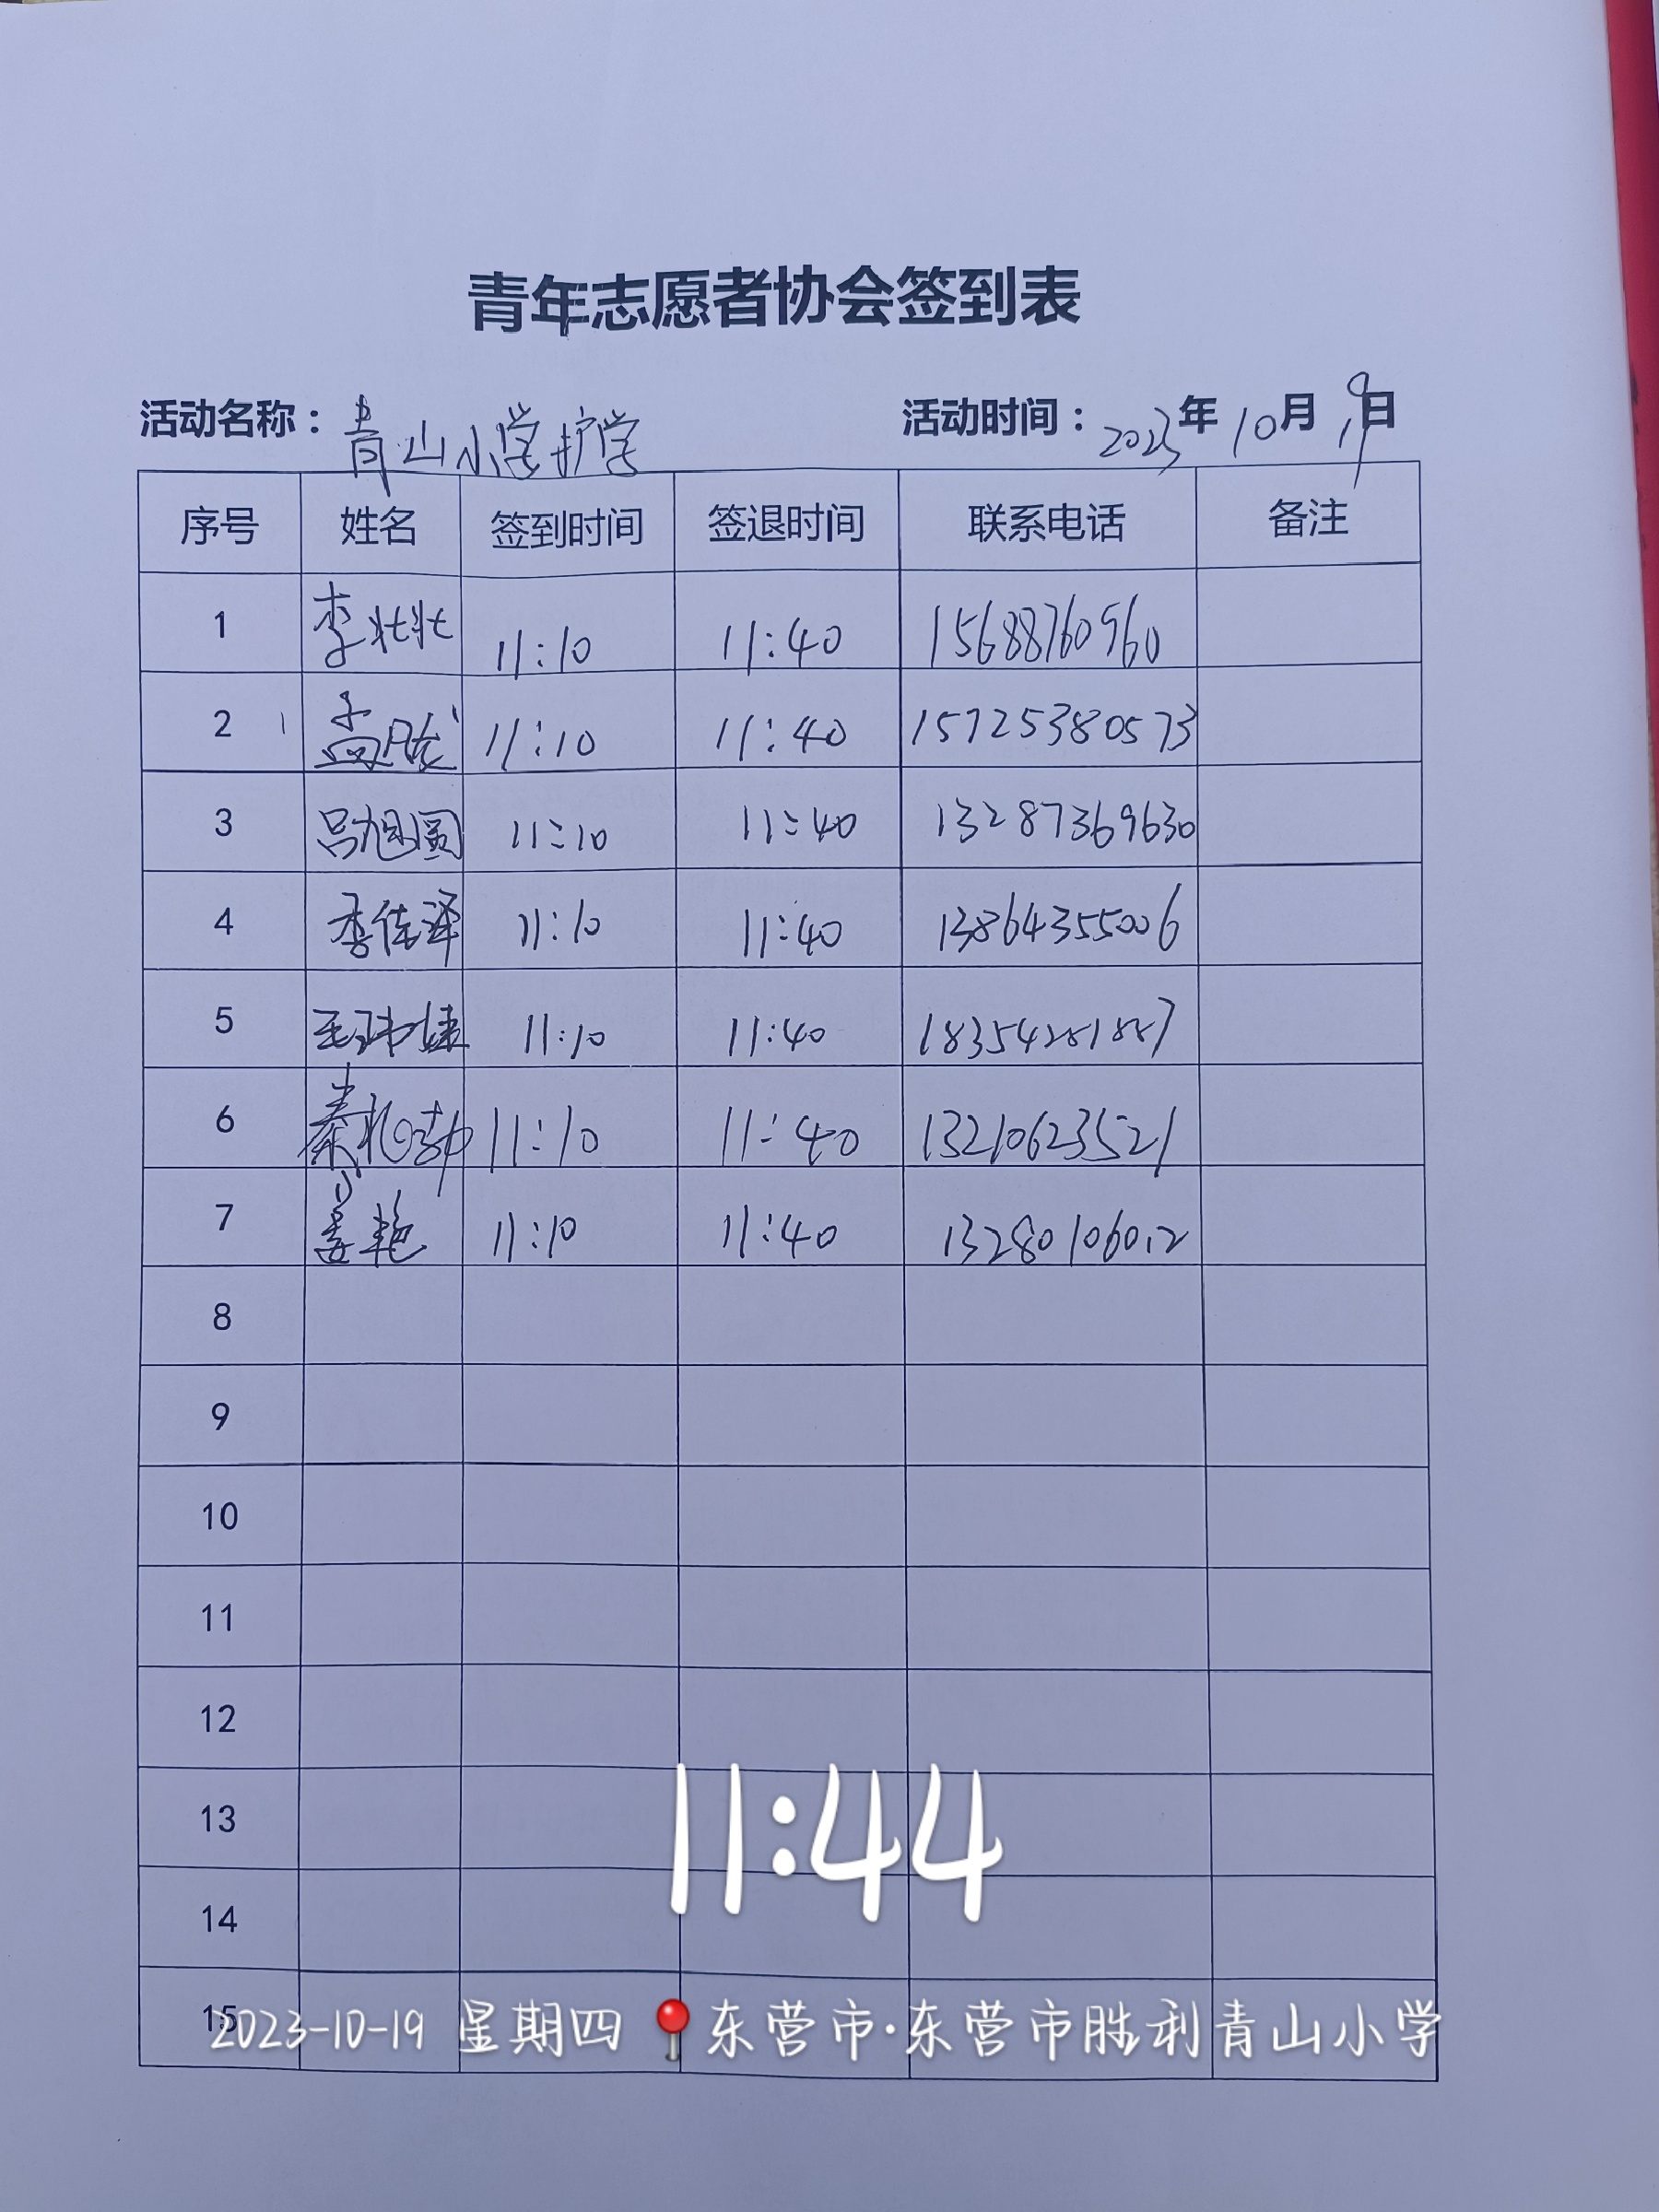 青年志愿者协会签到表
活动名称：青山小学护学 活动时间：2023年10月19日
序号 姓名 签到时间 签退时间 联系电话 备注
1 李壮壮 11:10 11:40 15688760960
2 孟 11:10 11:40 15725380573
3 吕旭圆 11:10 11:40 13287369630
4 李佳泽 11:10 11:40 13864355006
5 王玮婕 11:10 11:40 18354281887
6 秦 11:10 11:40 13210623521
7 姜艳 11:10 11:40 13280106012
8
9
10
11
12
13
11:44
14
15
2023-10-19 星期四 东营市·东营市胜利青山小学